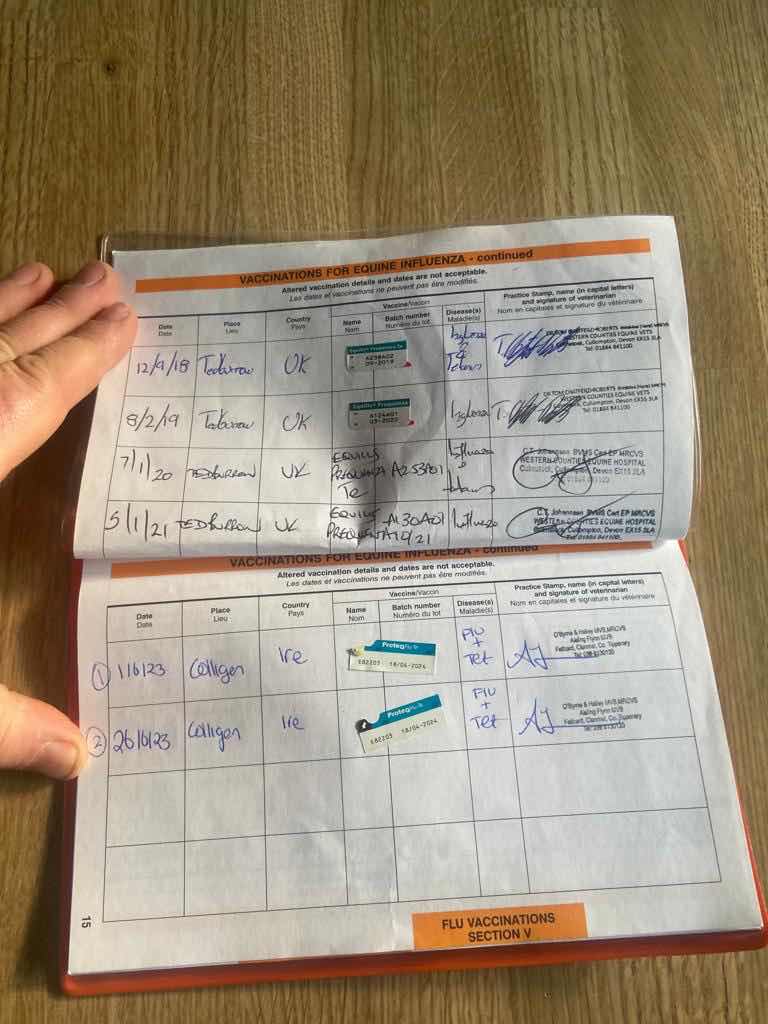 VACCINATIONS FOR EQUINE INFLUENZA - continued
Altered vaccination details and dates are not acceptable.
Les dates et vaccinations ne peuvent pas être modifiés.
Date
Date
Place
Lieu
Country
Pays
Vaccine/Vaccin
Name
Nom
Batch number
Numéro du lot
Disease(s)
Maladie(s)
Practice Stamp, name (in capital letters)
and signature of veterinarian
Nom en capitales et signature du vétérinaire
12/9/18 Tedburrow UK
A298A02
09-2019
WESTERN COUNTIES EQUINE VETS
Cullompton, Devon EX15 3LA
Tel: 01884 841100
8/2/19 Tedburrow UK
A124A01
03-2020
Influenza
WESTERN COUNTIES EQUINE VETS
Cullompton, Devon EX15 3LA
Tel: 01884 841100
7/1/20 TEDBURROW UK
EQUILIS
PREQUENZA A253A01
Te
Influenza
C.T. Johansen BVMS Cert EP MRCVS
WESTERN COUNTIES EQUINE HOSPITAL
Cullompton, Devon EX15 3LA
5/1/21 TEDBURROW UK
EQUILIS
PREQUENZA
A130A01
Influenza
C.T. Johansen BVMS Cert EP MRCVS
WESTERN COUNTIES EQUINE HOSPITAL
Cullompton, Devon EX15 3LA
Tel: 01884 841100
VACCINATIONS FOR EQUINE INFLUENZA - continued
Altered vaccination details and dates are not acceptable.
Les dates et vaccinations ne peuvent pas être modifiés.
Date
Date
Place
Lieu
Country
Pays
Vaccine/Vaccin
Name
Nom
Batch number
Numéro du lot
Disease(s)
Maladie(s)
Practice Stamp, name (in capital letters)
and signature of veterinarian
Nom en capitales et signature du vétérinaire
1 1/6/23 Colligan Ire
ProteqFlu Te
E82203 18/04-2024
Flu
+
Tet
O'Byrne & Halley MVB, MRCVS
Aisling Flynn MVB
Fethard, Clonmel, Co. Tipperary
2 26/6/23 Colligan Ire
ProteqFlu Te
E82203 18/04-2024
Flu
+
Tet
O'Byrne & Halley MVB, MRCVS
Aisling Flynn MVB
Fethard, Clonmel, Co. Tipperary
15
FLU VACCINATIONS
SECTION V